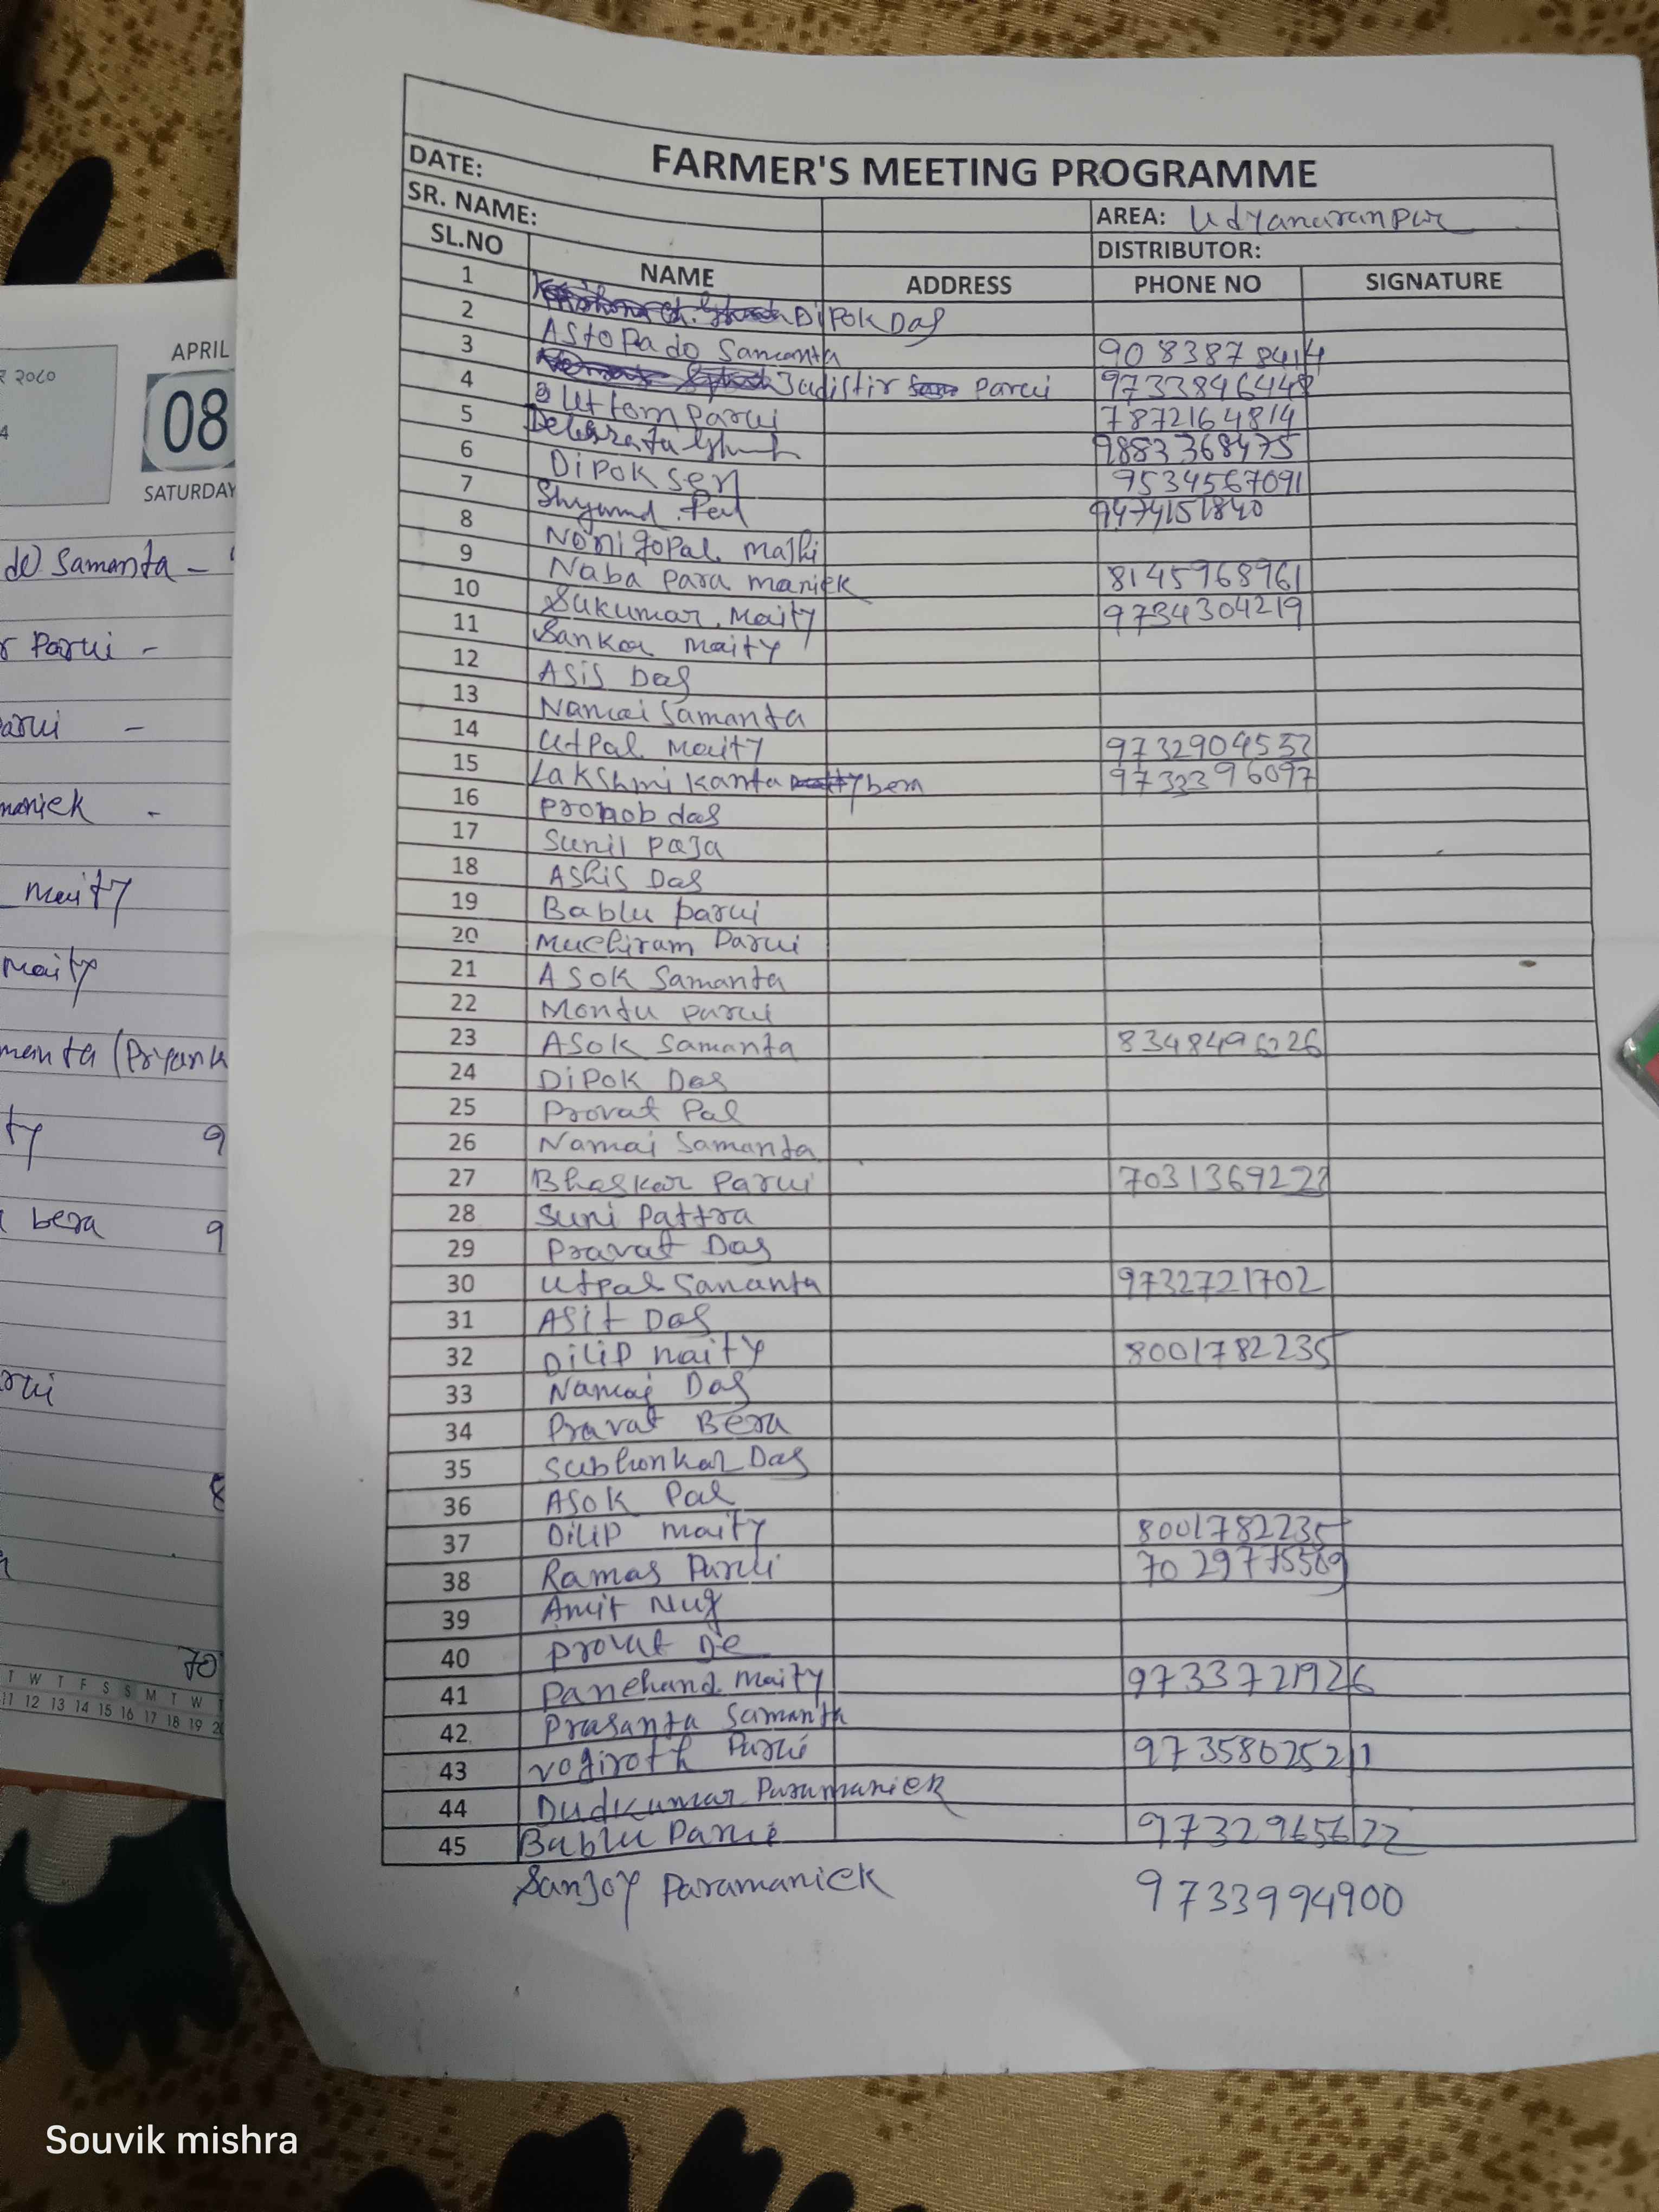 FARMER'S MEETING PROGRAMME
DATE:
SR. NAME:
AREA: Udyanaranpur
DISTRIBUTOR:
SL.NO NAME ADDRESS PHONE NO SIGNATURE
1 Dipok Das
2 Astopado Samanta 9083878414
3 Judistir Parui 9733846448
4 Uttom Parui 7872164814
5 Debabrata Ghosh 9883368475
6 Dipok sen 9534567091
7 Pal 9474151840
8 Nonigopal Mashi
9 Naba para maniek 8145968961
10 Sukumar Maity 9734304219
11 Sankar Maity
12 Asis Das
13 Namai Samanta
14 Utpal Maity 9732904553
15 Lakshmi kanta bera 9733396097
16 Pronob das
17 Sunil Paja
18 Ashis Das
19 Bablu parui
20 Muchiram Parui
21 Asok Samanta
22 Montu parui
23 Asok Samanta 8348496226
24 Dipok Das
25 Provat Pal
26 Namai Samanta
27 Bhaskar Parui 7031369223
28 Suni Pattra
29 Pravat Das
30 Utpal Samanta 9732721702
31 Asit Das
32 Dilip Maity 8001782235
33 Namai Das
34 Pravat Bera
35 Subhonkar Das
36 Asok Pal
37 Dilip maity 8001782235
38 Ramas Parui 7029775569
39 Amit Nug
40 Provat De
41 Panchand Maity 9733721926
42 Prasanta Samanta
43 Vogiroth Parui 9735802521
44 Dudkumar Paramaniek
45 Bablu Parui 9732965622
Sanjoy Paramaniek 9733994900
APRIL
08
SATURDAY
do Samanta -
r Parui -
arui -
maniek -
Maity
Maity
manta (Priyank
ty 9
bera 9
8
70
T W T F S S M T W
11 12 13 14 15 16 17 18 19
Souvik mishra